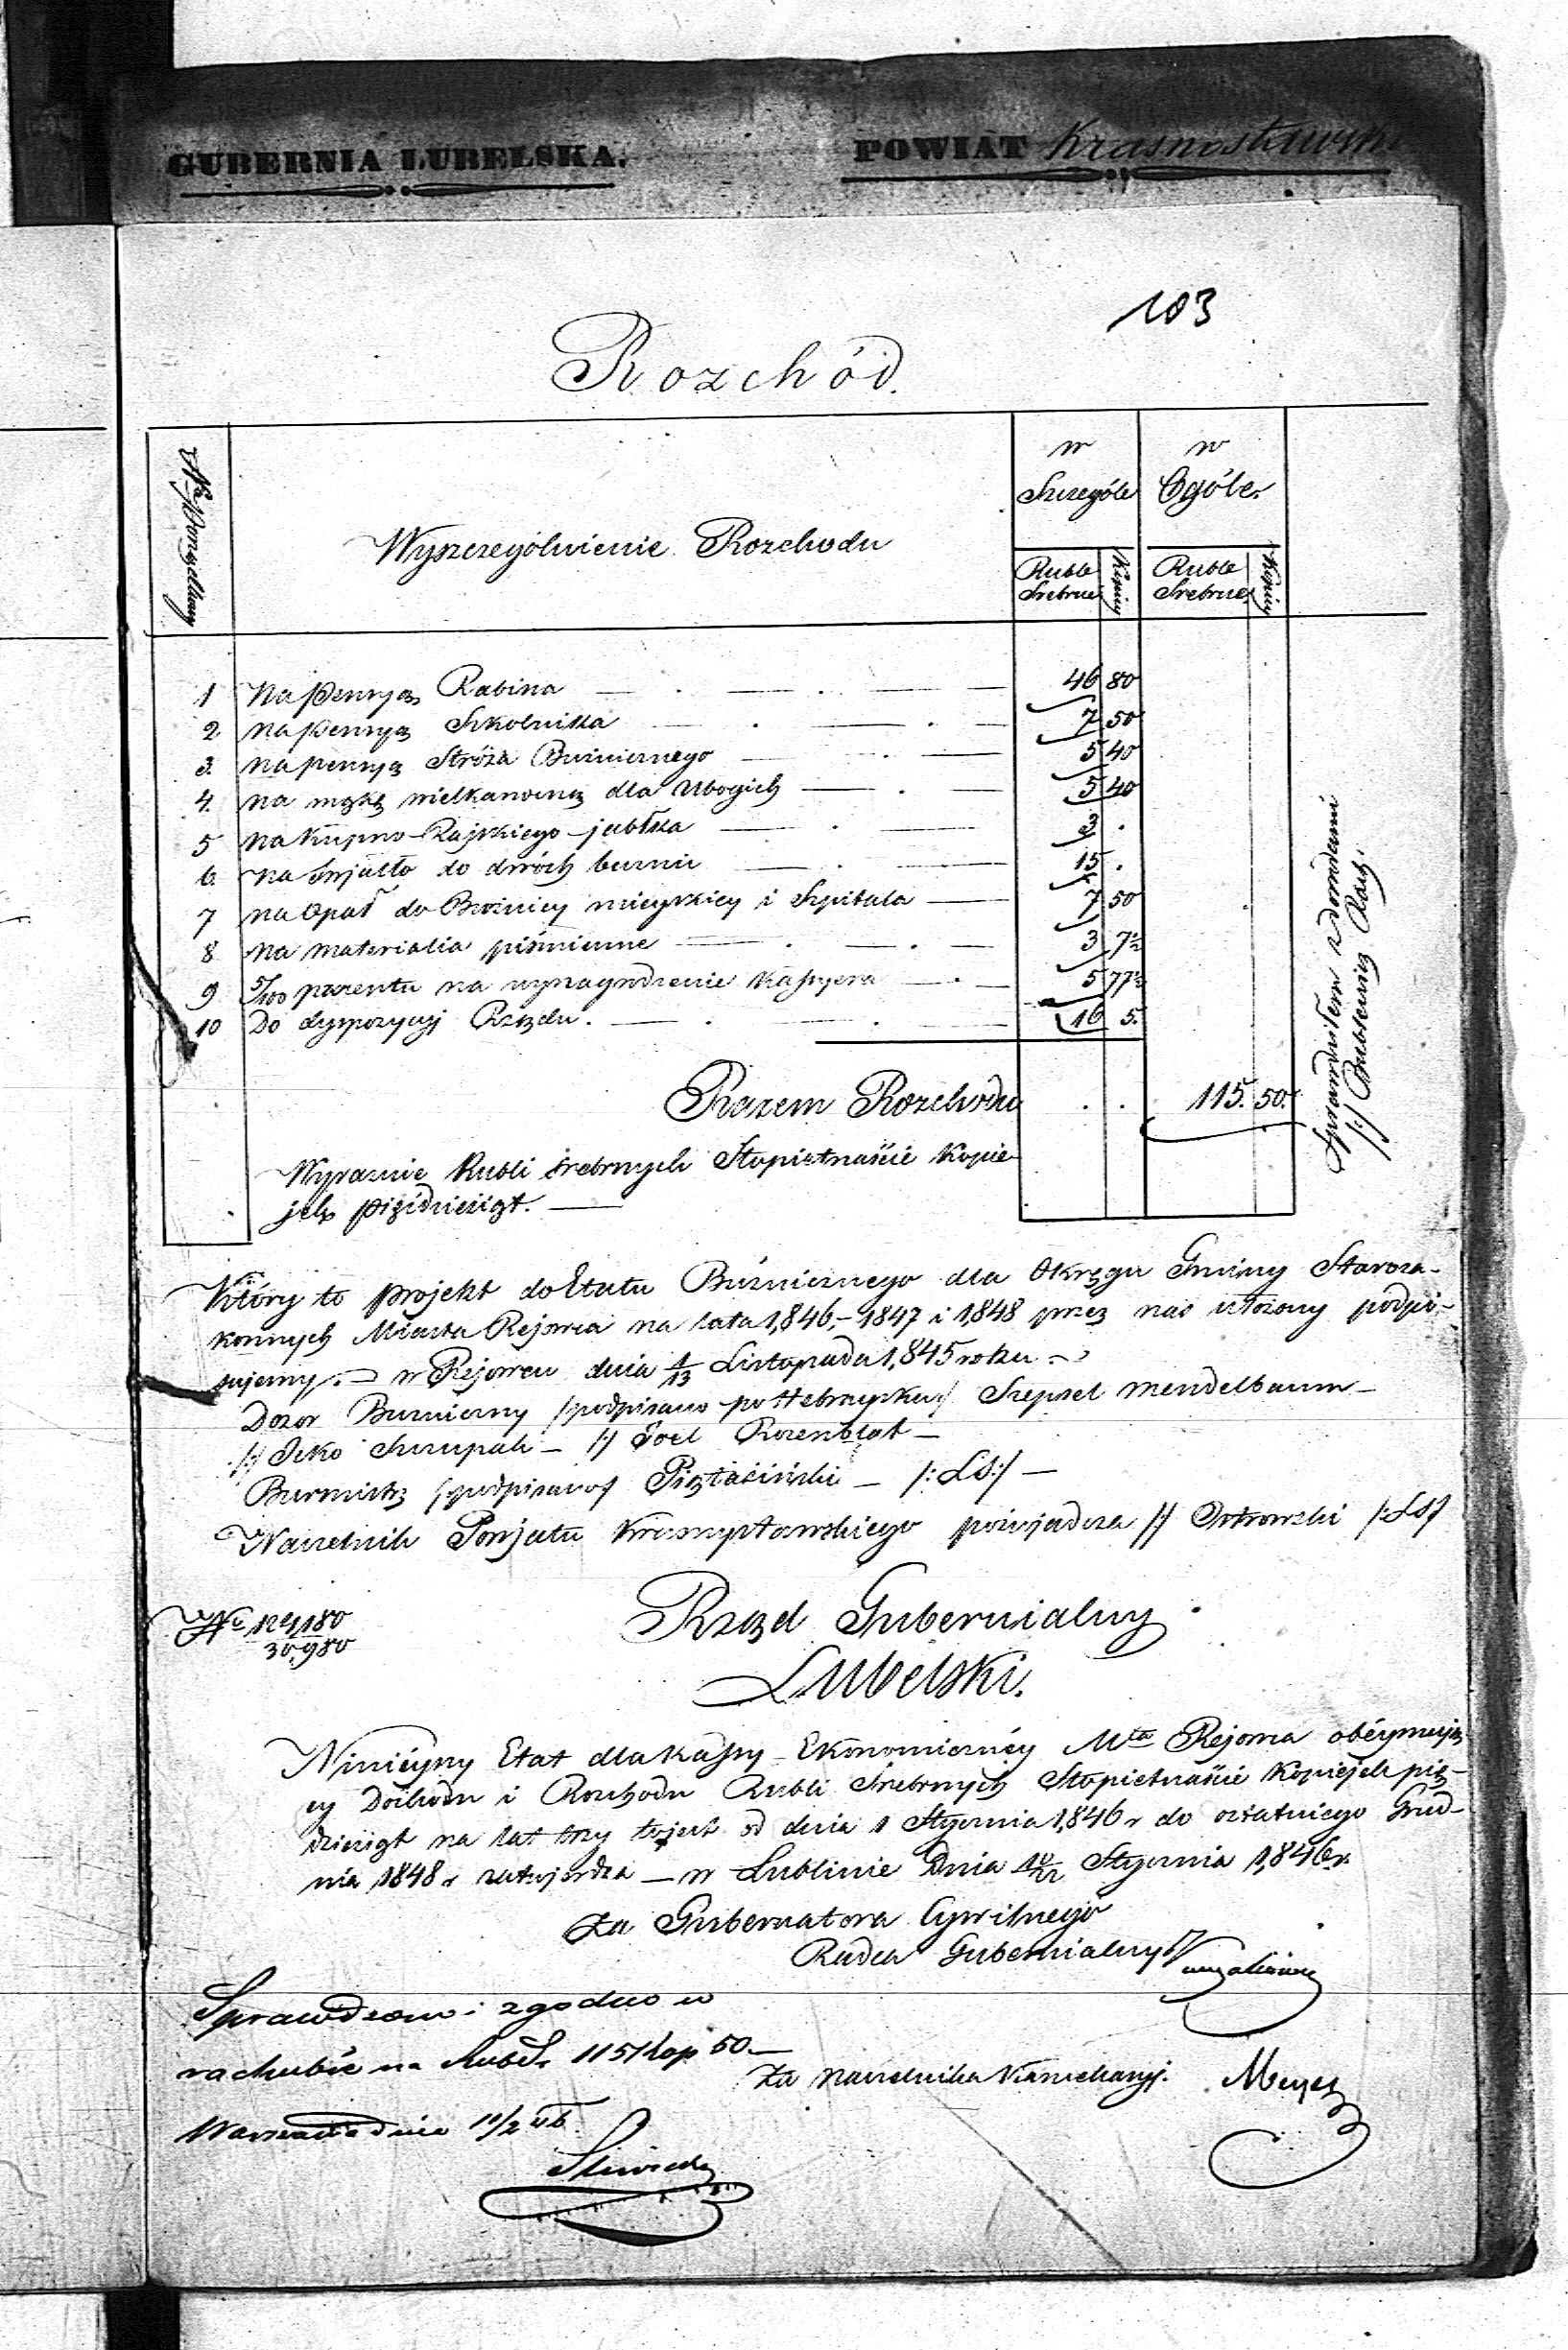 GUBERNIA LUBELSKA. POWIAT Krasnostawski
103
Rozchód.
w w
Szczególe Ogóle
Wyszczególnienie Rozchodu
Ruble Srebrne Kopiejki Ruble Srebrne Kopiejki
1 Na pensyą Rabina 46 80
2 na pensyą Szkolnika 7 50
3. na pensyą Stróża Bużnicznego 5 40
4. na mąkę wielkanocną dla Ubogich 5 40
5 na kupno Rajskiego jabłka 3 .
6. na Swjatło do dwóch bużnic 15 .
7 na Opał do Bożnicy mieyskiey i Szpitala 7 50
8 na materialia piśmienne 3 7½
9 5/100 procentu na wynagrodzenie Kassyera 5 77½
10 Do dyspozycyj Rządu. 16 5.
Razem Rozchodu . . 115. 50.
Wyraznie Rubli śrebrnych Stopiętnaście Kopie-
jek pięćdziesiąt.
Sprawdziłem z dowodami
/:/ Rach:
Który to projekt do Etatu Bużnicznego dla Okręgu Gminy Staroza-
konnych Miasta Rejowca na lata 1,846,- 1847 i 1,848 przez nas ułożony podpi-
sujemy. - w Rejowcu dnia 1/13 Listopada 1,845 roku. -
Dozor Bużniczny /podpisano po Hebraysku/ Szepsel Mendelbaum -
/:/ Icko Szczupak - /:/ Joel Rosenblat -
Burmistrz /podpisano/ Piątasiński - /:LS:/ -
Naczelnik Powjatu Krasnystawskiego poświadcza /:/ /:LS/
No 124,180
30,980
Rząd Gubernialny
Lubelski.
Ninieyszy Etat dla Kassy Ekonomicznéy Mta Rejowca obeymują-
cy Dochodu i Rozchodu Rubli Srebrnych Stopietnaście Kopiejek pięć-
dziesiąt na lat trzy to jest od dnia 1 Stycznia 1,846 r do ostatniego Grud-
nia 1848 r zatwjerdza - w Lublinie Dnia 10/22 Stycznia 1,846 r.
Za Gubernatora Cywilnego
Radca Gubernialny
Sprawdzono i zgodno w
rachubie na RubS. 115 kop 50.-
Za Naczelnika Kancelaryj. Meyer
Warszawa dnia 11/2 46